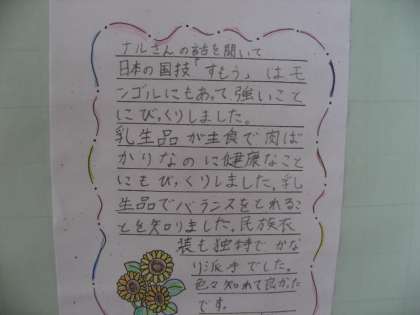 ナルさんの話を聞いて
日本の国技「すもう」はモ
ンゴルにもあって強いこと
にびっくりしました。
乳生品が主食で肉ば
かりなのに健康なこと
にもびっくりしました。乳
生品でバランスをとれるこ
とを知りました。民族衣
装も独特でかな
り派手でした。
色々知れて良かった
です。